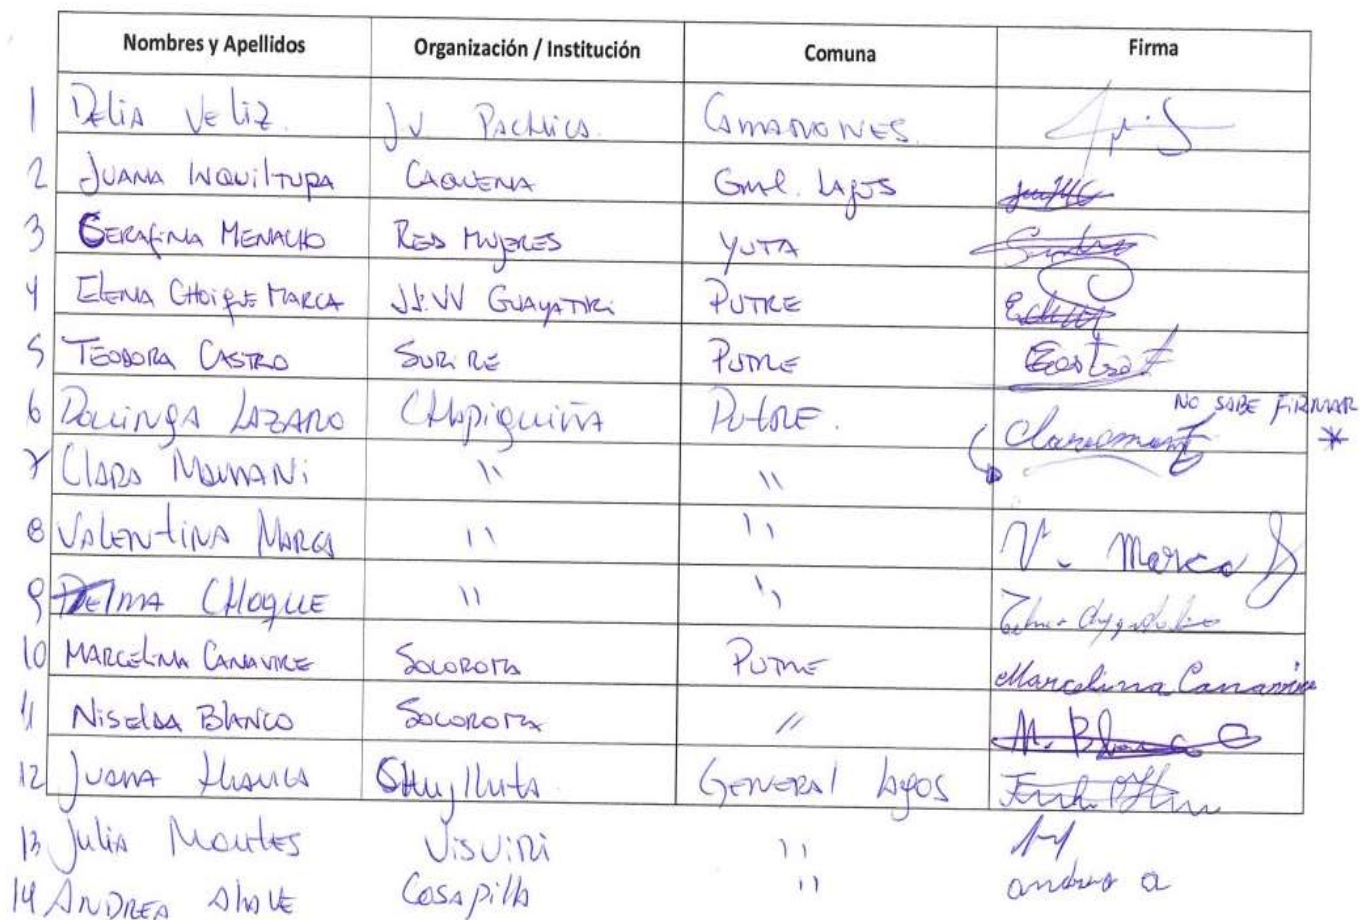 Nombres y Apellidos Organización / Institución Comuna Firma
1 Delia Veliz. JV Pachica. Camarones.
2 Juana Inquiltupa Caquena Gral. Lagos
3 Serafina Menacho Red Mujeres Yuta
4 Elena Choique Marca JJ.VV Guayatiri Putre
5 Teodora Castro Surire Putre
NO SABE FIRMAR
6 Dominga Lazaro Chapiquiña Putre. *
7 Clara Mamani " "
8 Valentina Marca " " V. Marca
9 Delma Choque " "
10 Marcelina Canavire Socoroma Putre Marcelina Canavire
11 Niselda Blanco Socoroma " N. Blanco
12 Juana General Lagos
13 Julia Montes Visviri "
14 Andrea Alave Cosapilla " andrea a